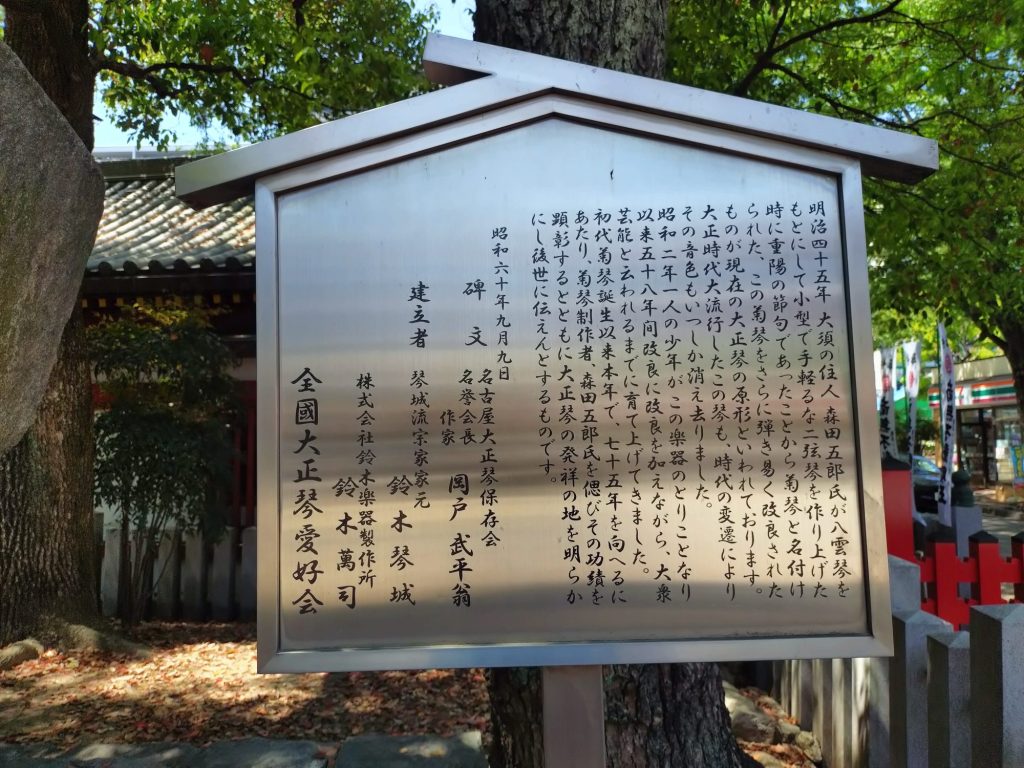 明治四十五年 大須の住人 森田五郎氏が八雲琴を
もとにして小型で手軽るな二弦琴を作り上げた
時に重陽の節句であったことから菊琴と名付け
られた、この菊琴をさらに弾き易く改良された
ものが現在の大正琴の原形といわれております。
大正時代大流行したこの琴も、時代の変遷により
その音色もいつしか消え去りました。
昭和二年一人の少年がこの楽器のとりことなり
以来五十八年間改良に改良を加えながら、大衆
芸能と云われるまでに育て上げてきました。
初代菊琴誕生以来本年で、七十五年を向へるに
あたり、菊琴制作者、森田五郎氏を偲びその功績を
顕彰するとともに大正琴の発祥の地を明らか
にし後世に伝えんとするものです。
昭和六十年九月九日
碑文 名古屋大正琴保存会
名誉会長
作家 岡戸武平翁
建立者 琴城流宗家家元
鈴木琴城
株式会社鈴木楽器製作所
鈴木萬司
全國大正琴愛好会